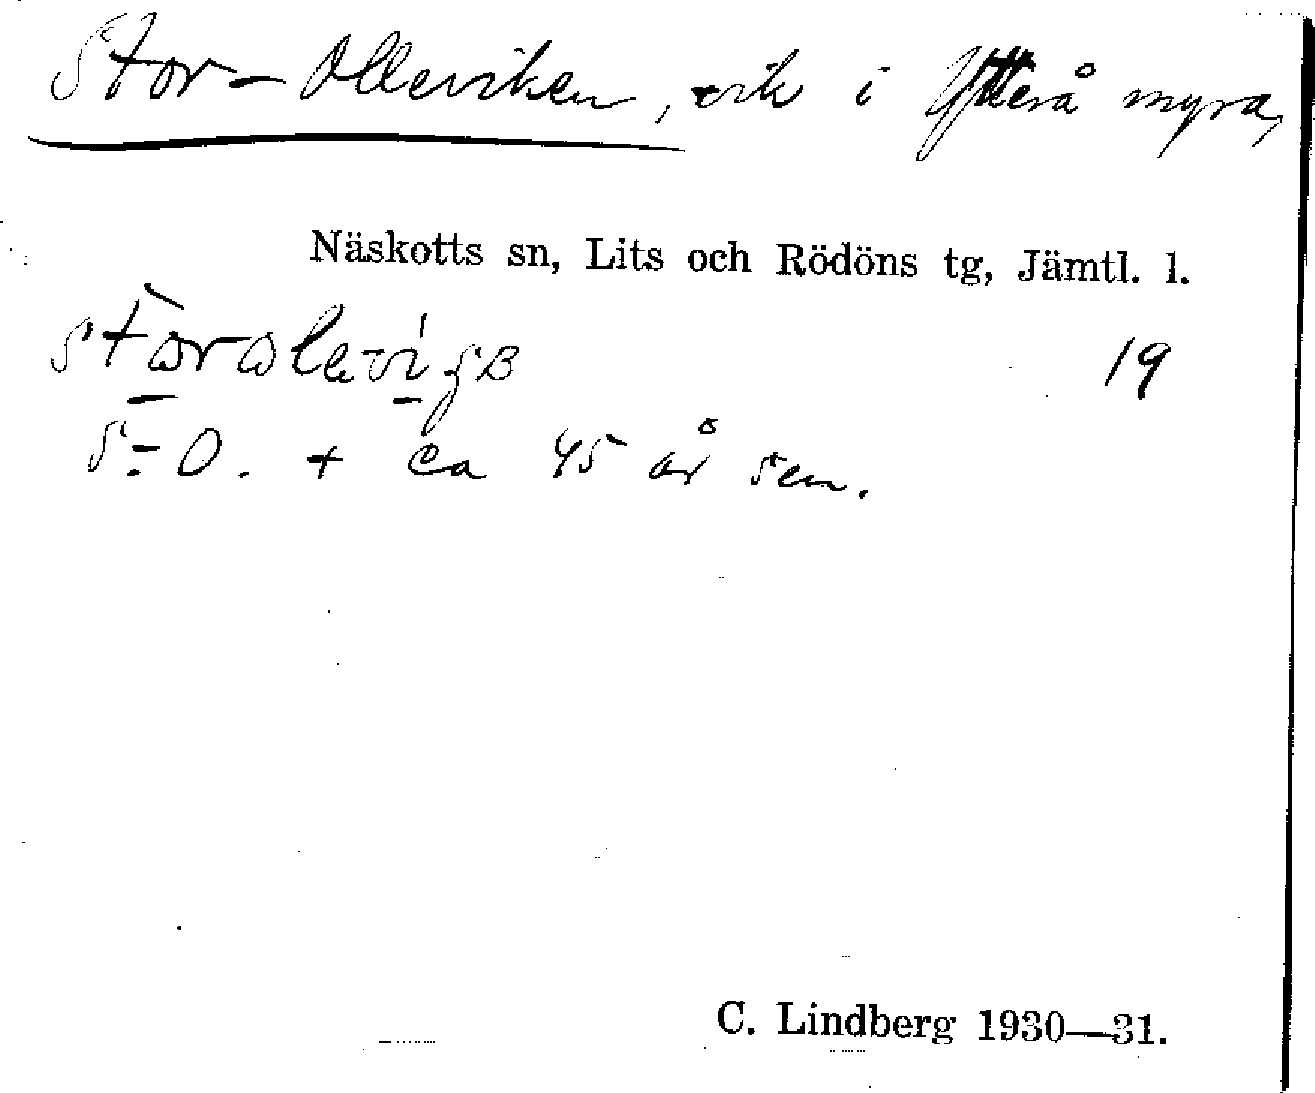 Stor-Olleviken, vik i Ytterå myra,
Näskotts sn, Lits och Rödöns tg, Jämtl. l.
19
S-O. + ca 45 år sen.
C. Lindberg 1930—31.